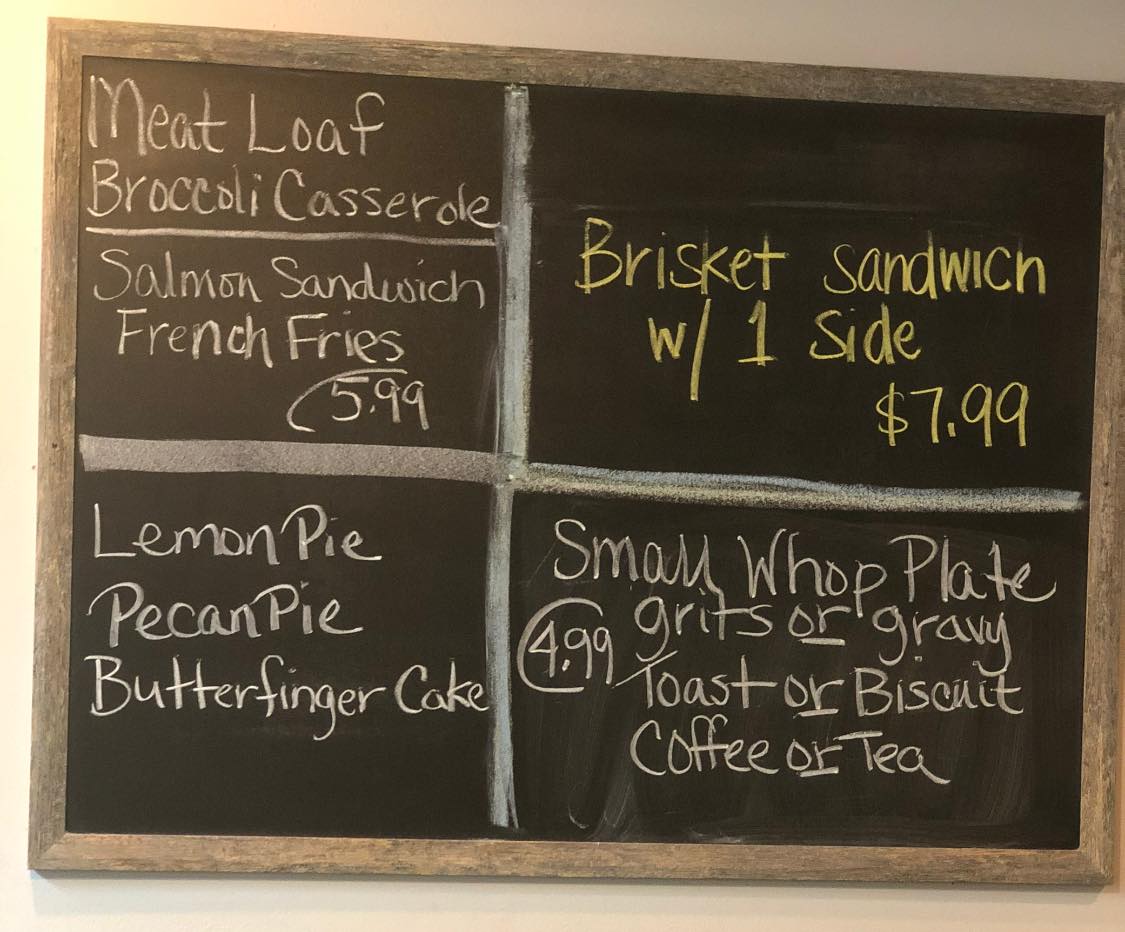 Meat Loaf
Broccoli Casserole
Salmon Sandwich
French Fries
5.99
Brisket Sandwich
w/ 1 Side
$7.99
Lemon Pie
Pecan Pie
Butterfinger Cake
Small Whop Plate
4.99 grits or gravy
Toast or Biscuit
Coffee or Tea